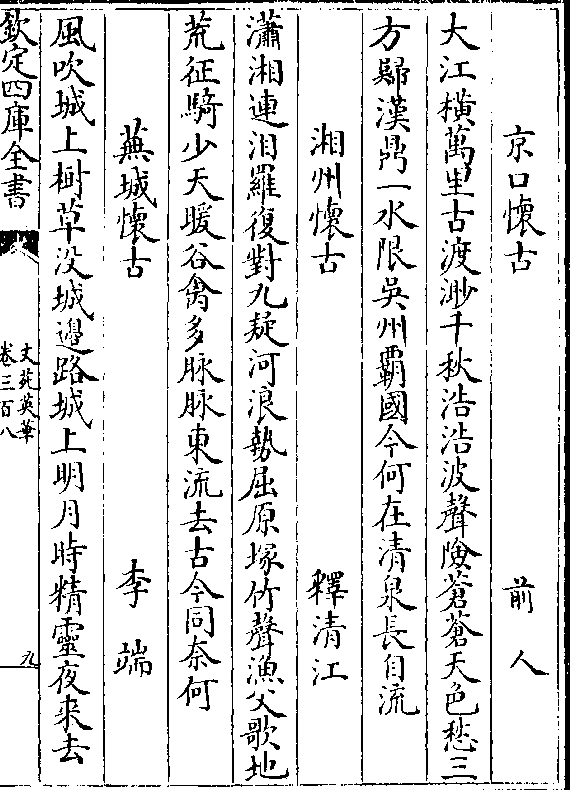 京口懷古　前人
大江橫萬里古渡渺千秋浩浩波聲險蒼蒼天色愁三
方歸漢鼎一水限吳州霸國今何在清泉長自流
湘州懷古　釋清江
瀟湘連汨羅復對九嶷河浪勢屈原塚竹聲漁父歌地
荒征騎少天暖谷禽多脉脉東流去古今同奈何
蕪城懷古　李端
風吹城上樹草沒城邊路城上明月時精靈夜來去
欽定四庫全書
文苑英華
卷三百八
九